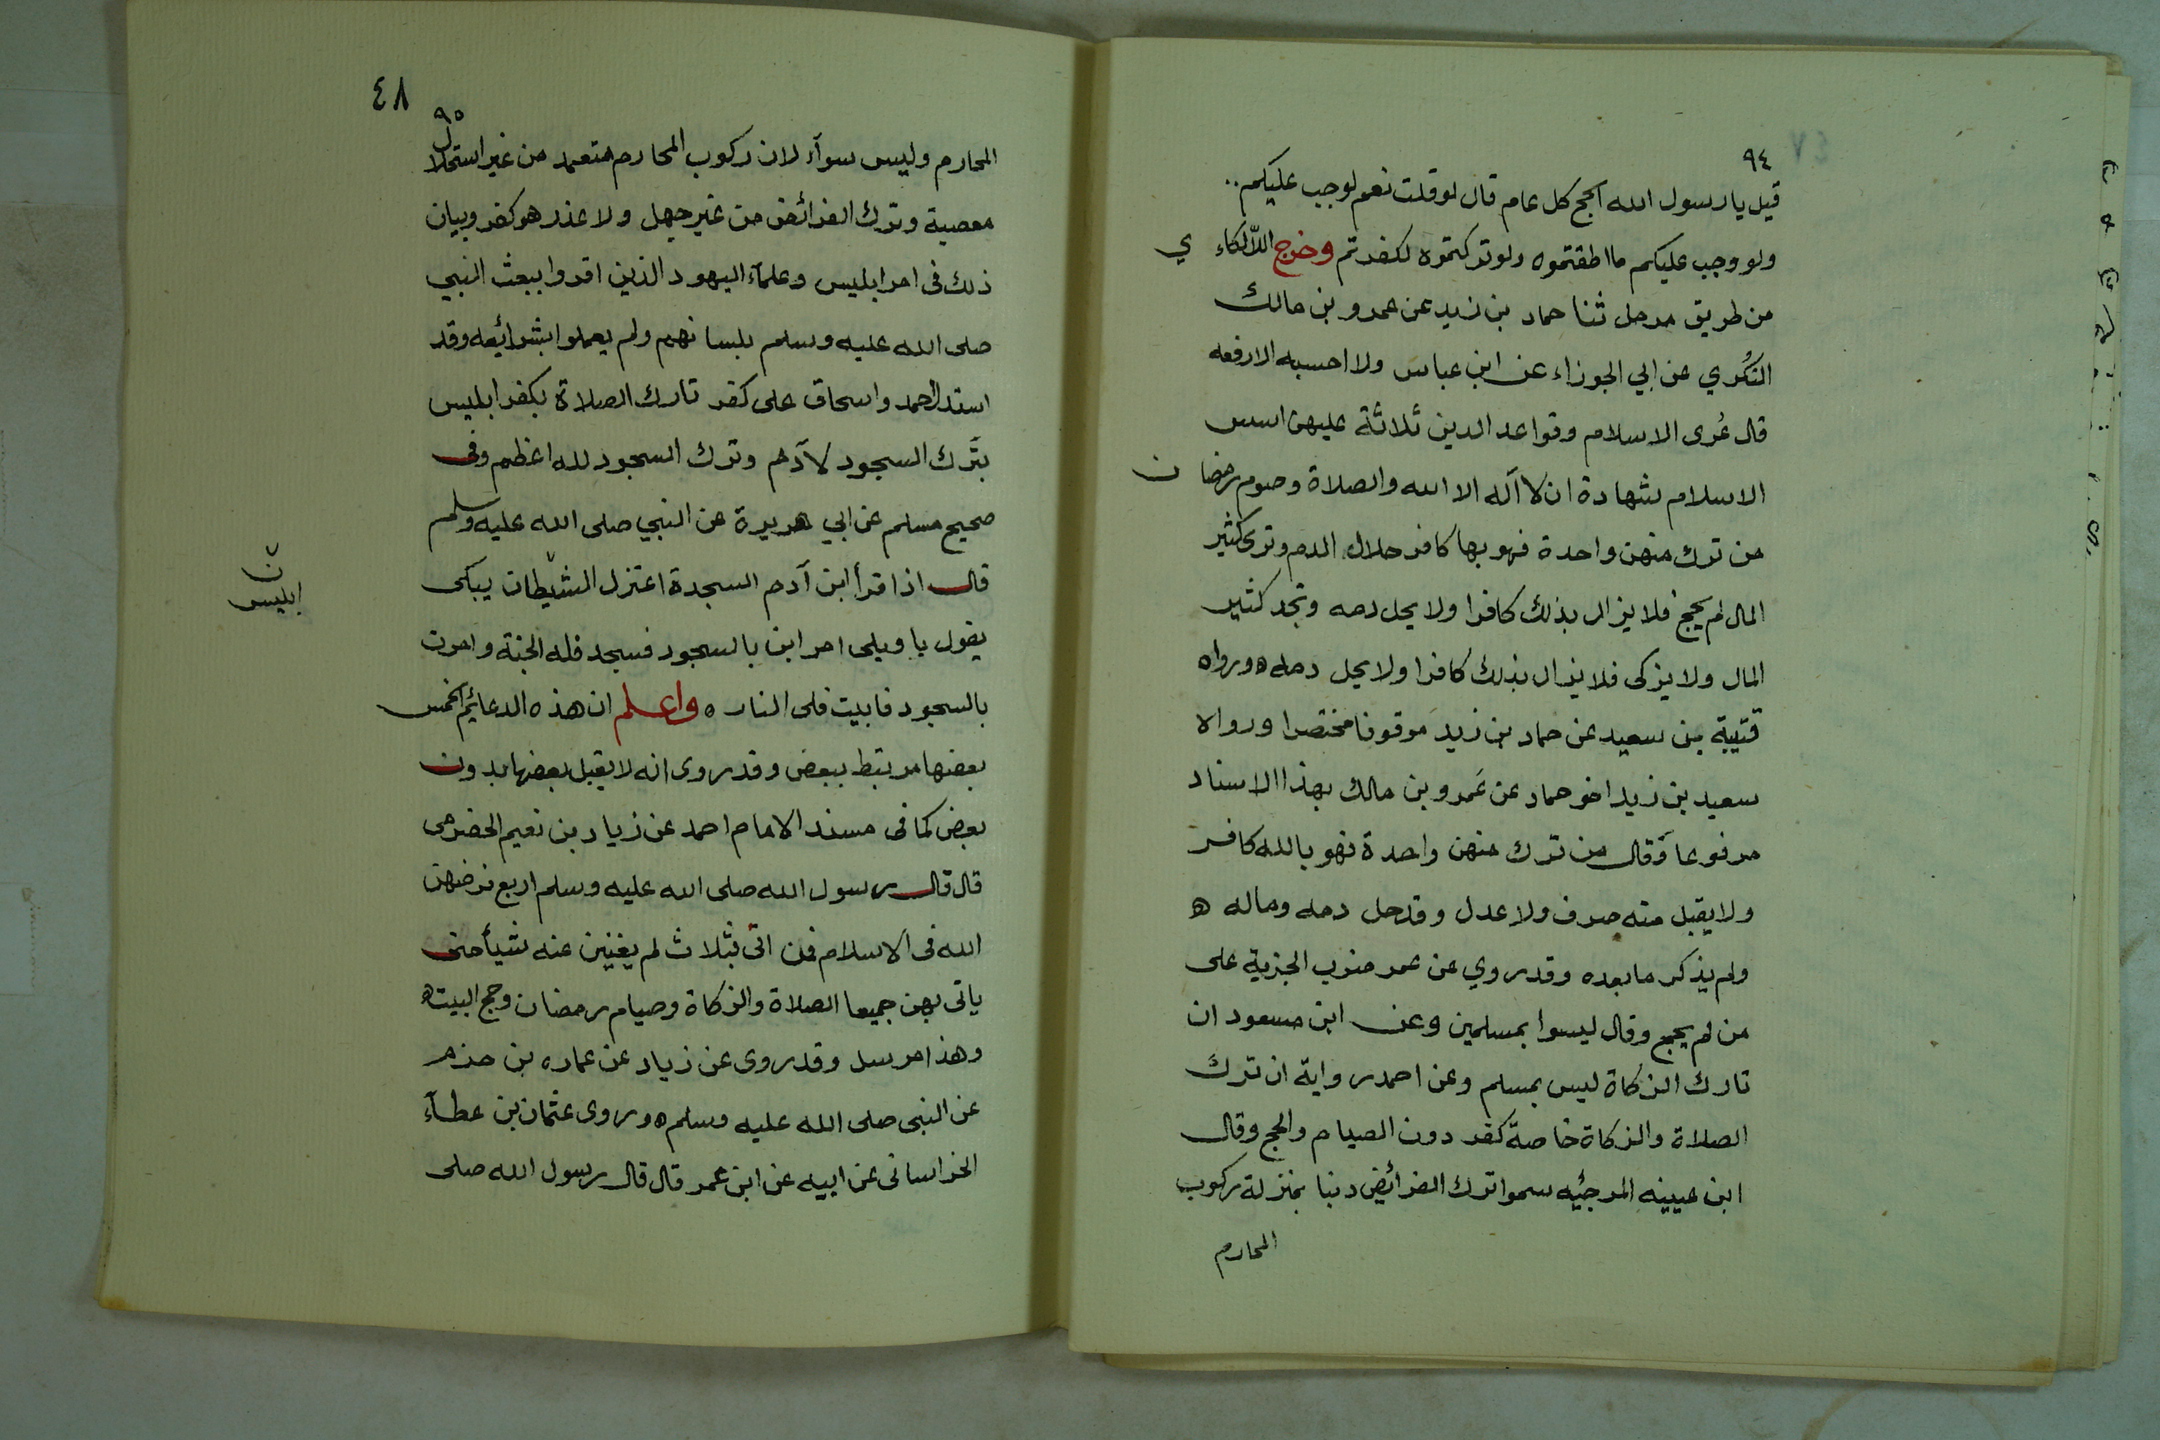 ٩٤
قيل يا رسول الله الحج كل عام قال لو قلت نعم لوجب عليكم
ولو وجب عليكم ما اطقتموه ولو تركتموه لكفرتم وخرج اللالكاءي
من طريق مرمل ثنا حماد بن زيد عن عمرو بن مالك
النكُري عن ابي الجوزاء عن ابن عباس ولا احسبه الا رفعه
قال عُرى الاسلام وقواعد الدين ثلاثة عليهن اسس
الاسلام شهادة ان لا اله الا الله والصلاة وصوم رمضان
من ترك منهن واحدة فهو بها كافر حلال الدم وترى كثير
المال لم يحج فلا يزال بذلك كافرا ولا يحل دمه وتجد كثير
المال ولا يزكى فلا يزال بذلك كافرا ولا يحل دمه ه ورواه
قتيبة بن سعيد عن حماد بن زيد موقوفا مختصرا ورواه
سعيد بن زيد اخو حماد عن عَمرو بن مالك بهذا الاسناد
مرفوعا وقال من ترك منهن واحدة فهو بالله كافر
ولا يقبل منه صرف ولا عدل وقد حل دمه وماله ه
ولم يذكر ما بعده وقد روي عن عمر ضرب الجزية على
من لم يحج وقال ليسوا بمسلمين وعن ابن مسعود ان
تارك الزكاة ليس بمسلم وعن احمد رواية ان ترك
الصلاة والزكاة خاصة كفر دون الصيام والحج وقال
ابن عيينه المرجئيه سموا ترك الفرائض دنبا بمنزلة ركوب
المحارم
٤٨
٩٥
المحارم وليس سوآء لان ركوب المحارم متعمد من غير استحلال
معصية وترك الفرائض من غير جهل ولا عذر هو كفر وبيان
ذلك فى امر ابليس وعلمآء اليهود الذين اقروا ببعث النبي
صلى الله عليه وسلم بلسانهم ولم يعملوا بشرائعه وقد
استدل احمد واسحاق على كفر تارك الصلاة بكفر ابليس
بترك السجود لآدم وترك السجود لله اعظم وفى
صحيح مسلم عن ابي هريرة عن النبي صلى الله عليه وسلم
قال اذا قرأ ابن آدم السجدة اعتزل الشيطان يبكى
ن
ابليس
يقول يا ويلى امر ابن بالسجود فسجد فله الجنة وامرت
بالسجود فابيت فلى النار ه واعلم ان هذه الدعائم الخمس
بعضها مرتبط ببعض وقد روى انه لا يقبل بعضها بدون
بعض كما فى مسند الامام احمد عن زياد بن نعيم الحضرمى
قال قال رسول الله صلى الله عليه وسلم اربع فرضهن
الله فى الاسلام فمن اتى بثلاث لم يغنين عنه شيأ حتى
ياتى بهن جميعا الصلاة والزكاة وصيام رمضان وحج البيت ه
وهذا مرسل وقد روى عن زياد عن عماره بن حزم
عن النبى صلى الله عليه وسلم ه وروى عثمان بن عطآء
الخراسانى عن ابيه عن ابن عمر قال قال رسول الله صلى